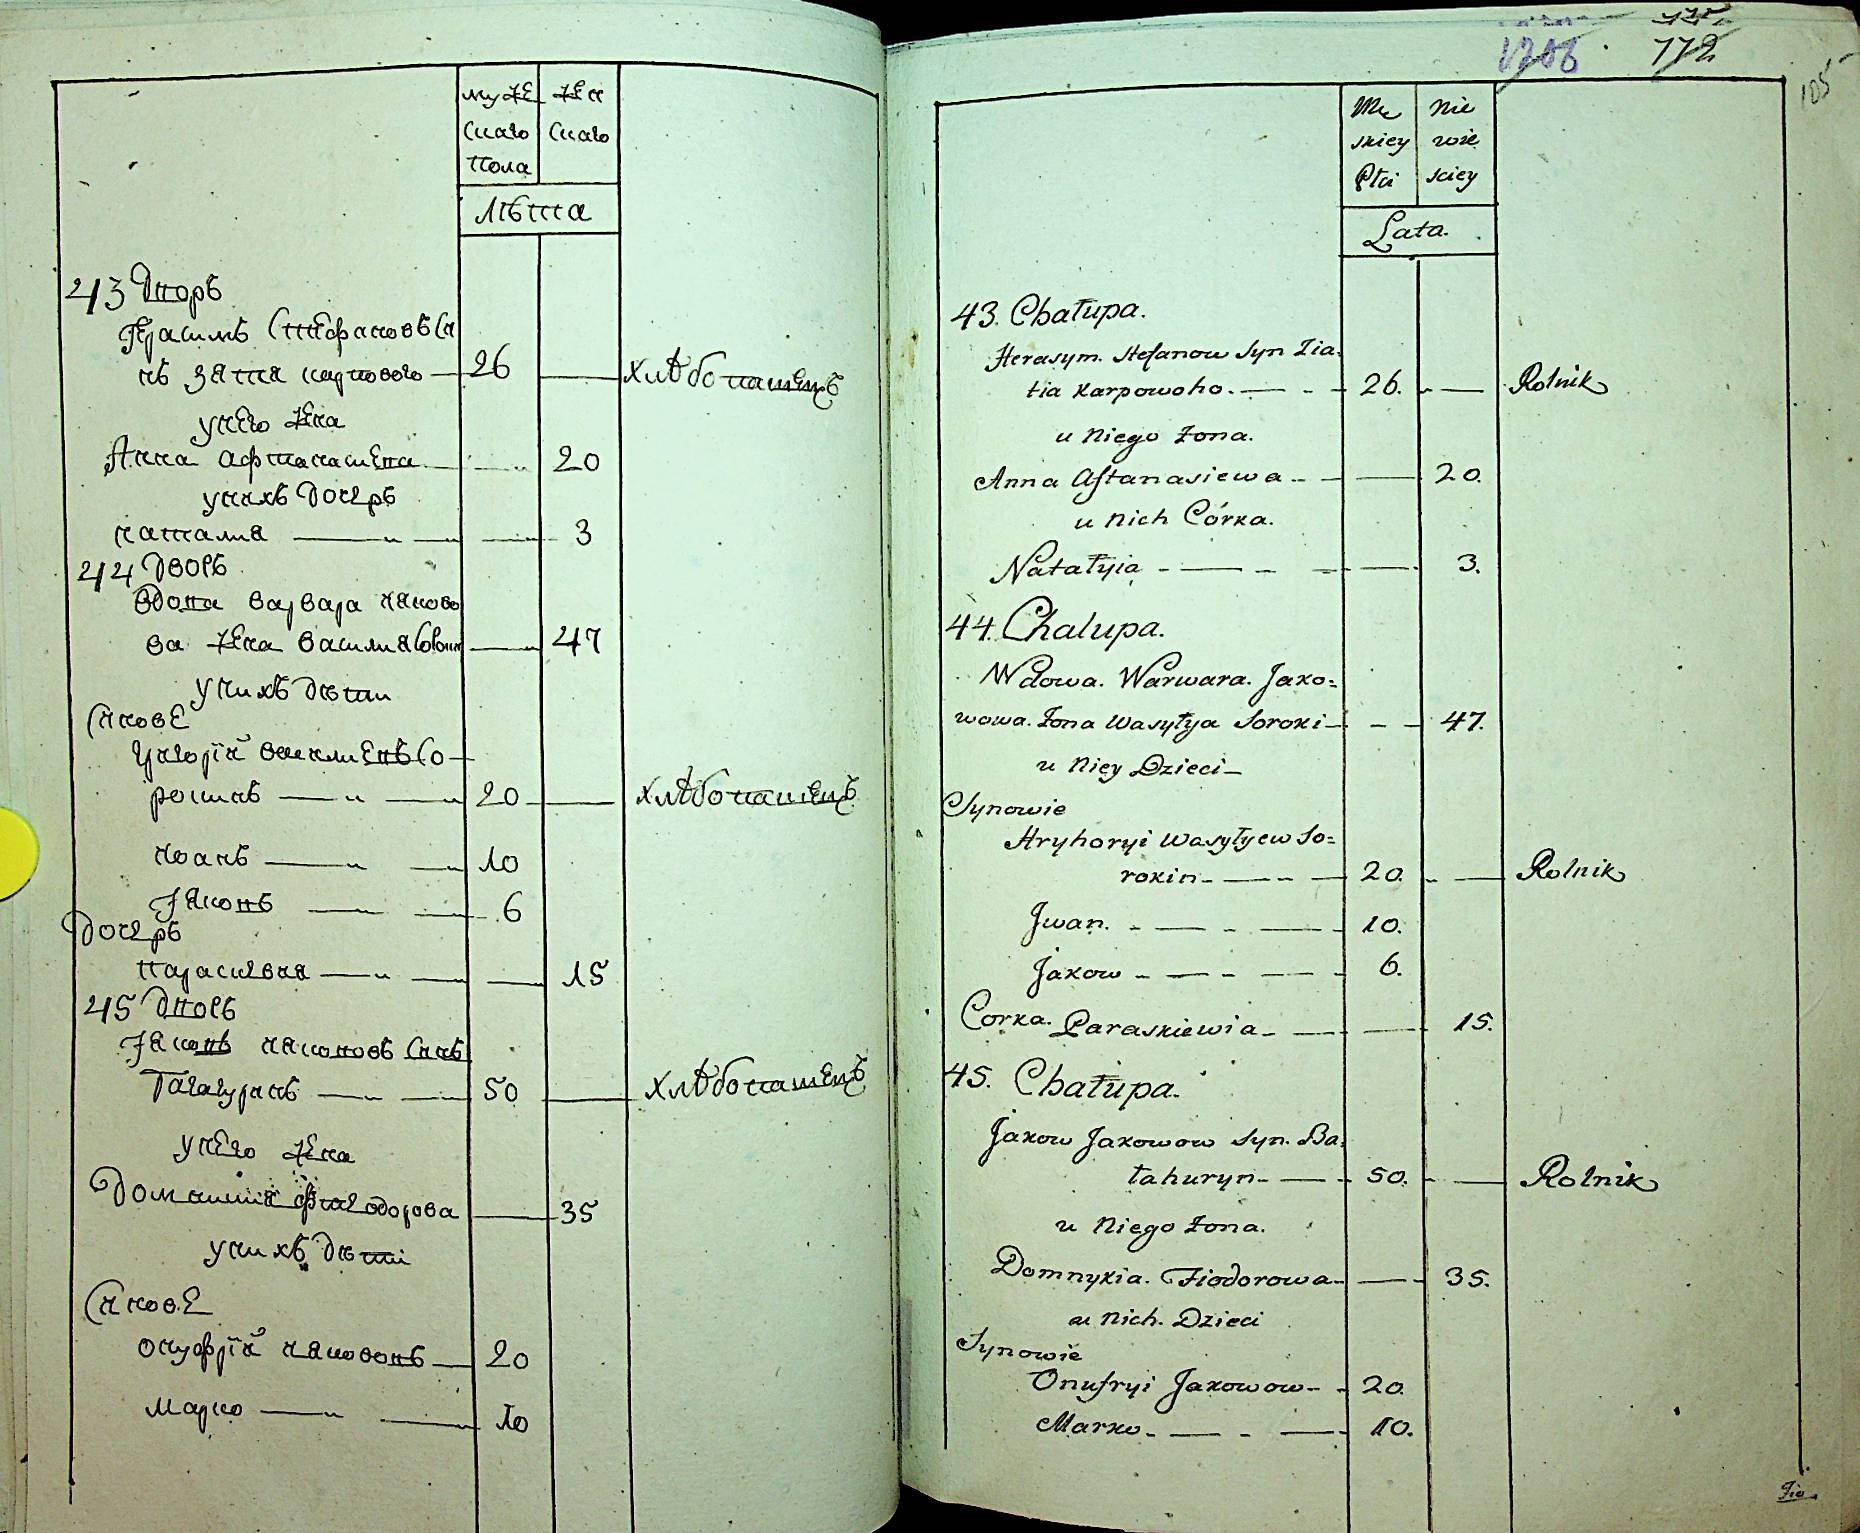 муже
скаго
пола
жен
скаго
лѣта
43 дворъ
Герасимъ Стефановъ сы
нъ зятя карпового 26 хлѣбопашецъ
у него жена
Анна афтанасиева 20
у нихъ дочерь
наталия 3
44 дворъ
вдова варвара яково
ва жена василия сороки 47
у нихъ дѣти
Сынове
григорій васильевъ со
рокинъ 20 хлѣбопашецъ
иванъ 10
Яковъ 6
дочерь
параскевия 15
45 дворъ
Яковъ якововъ сынъ
50 хлѣбопашецъ
у него жена
Домникия Фиеодорова 35
у нихъ дѣти
Сынове
онуфрій якововъ 20
марко 10
1206 112
105
Mę
skiey
Płci
Nie
wie
sciey
Lata.
43. Chałupa.
Herasym. Stefanow Syn Zia=
tia Karpowoho. 26. Rolnik
u Niego Zona.
Anna Aftanasiewa 20.
u Nich Córka.
Natałyia 3.
44. Chalupa.
Wdowa. Warwara. Jako=
wowa. Zona Wasyłya Soroki 47.
u Niey Dzieci
Synowie
Hryhoryi Wasyłyew So=
rokin 20. Rolnik
Jwan. 10.
Jakow 6.
Corka. Paraskiewia 15.
45. Chałupa.
Jakow Jakowow Syn. Ba=
tahuryn 50. Rolnik
u Niego Zona.
Domnykia. Fiodorowa 35.
u Nich. Dzieci
Synowie
Onufryi Jakowow 20.
Marko 10.
Fio